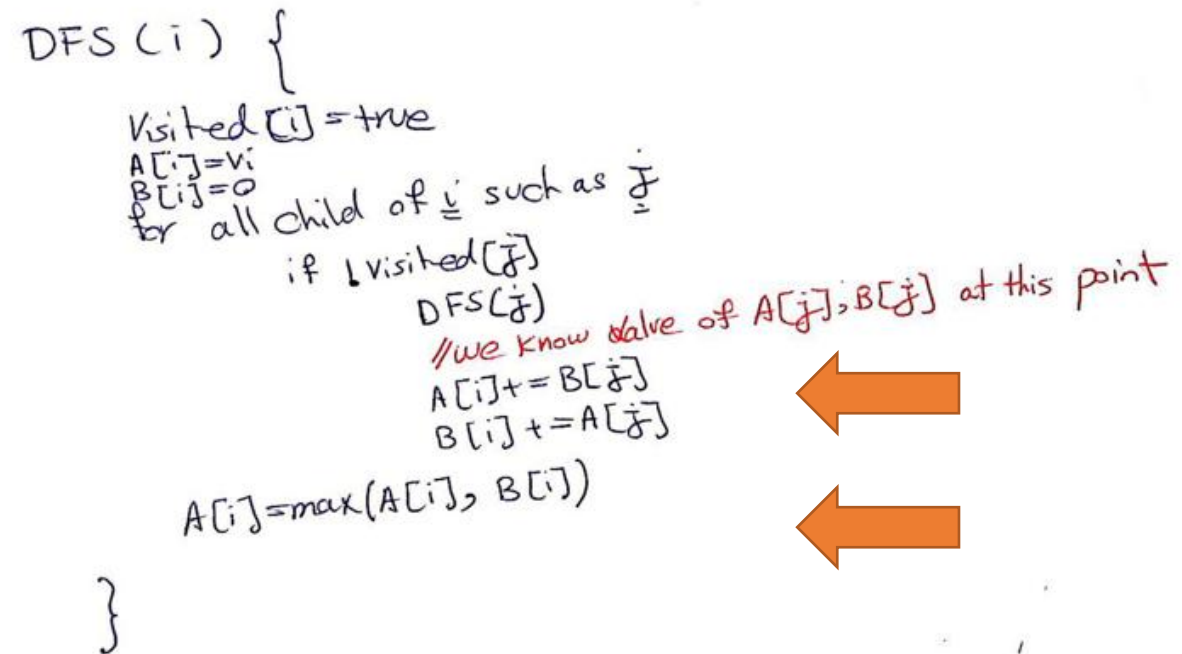 DFS (i) {
Visited [i] = true
A[i]=vi
B[i]=0
for all child of i such as j
if !visited[j]
DFS(j)
//we know valve of A[j], B[j] at this point
A[i]+= B[j]
B[i] +=A[j]
A[i]=max(A[i], B[i])
}